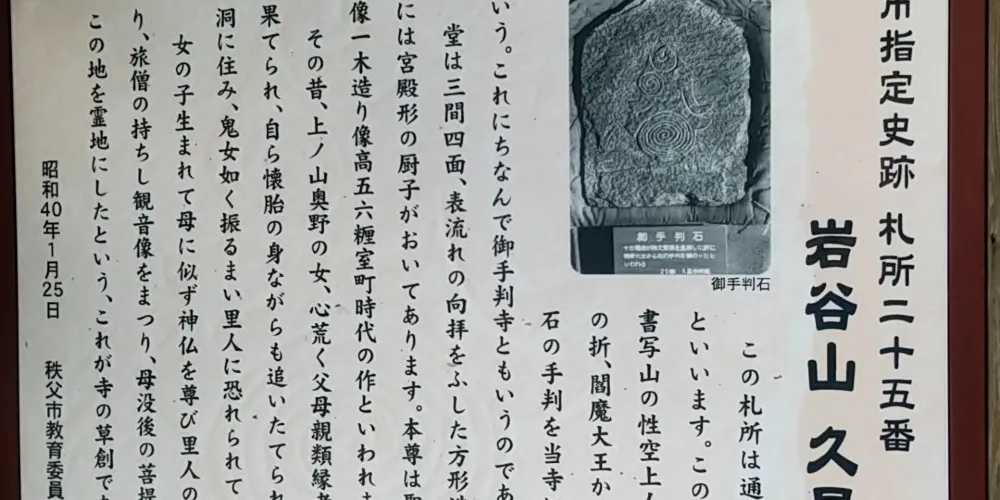 市指定史跡 札所二十五番
岩谷山 久
この札所は通
といいます。この
書写山の性空上人
の折、閻魔大王か
石の手判を当寺に
いう。これにちなんで御手判寺ともいうのであ
堂は三間四面、表流れの向拝をふした方形造
には宮殿形の厨子がおいてあります。本尊は聖
像一木造り像高五六糎室町時代の作といわれま
その昔、上ノ山奥野の女、心荒く父母親類縁者
果てられ、自ら懐胎の身ながらも追いたてられ
洞に住み、鬼女如く振るまい里人に恐れられて
女の子生まれて母に似ず神仏を尊び里人の
り、旅僧の持ちし観音像をまつり、母没後の菩提
この地を霊地にしたという、これが寺の草創であ
昭和40年1月25日 秩父市教育委員
御手判石
御手判石